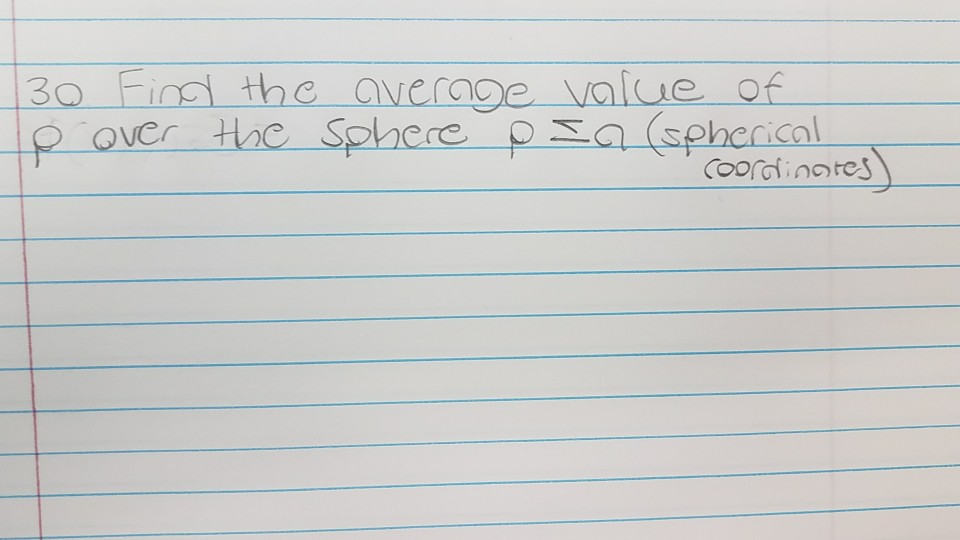 30 Find the average value of
ρ over the sphere ρ ≤ a (spherical
coordinates)